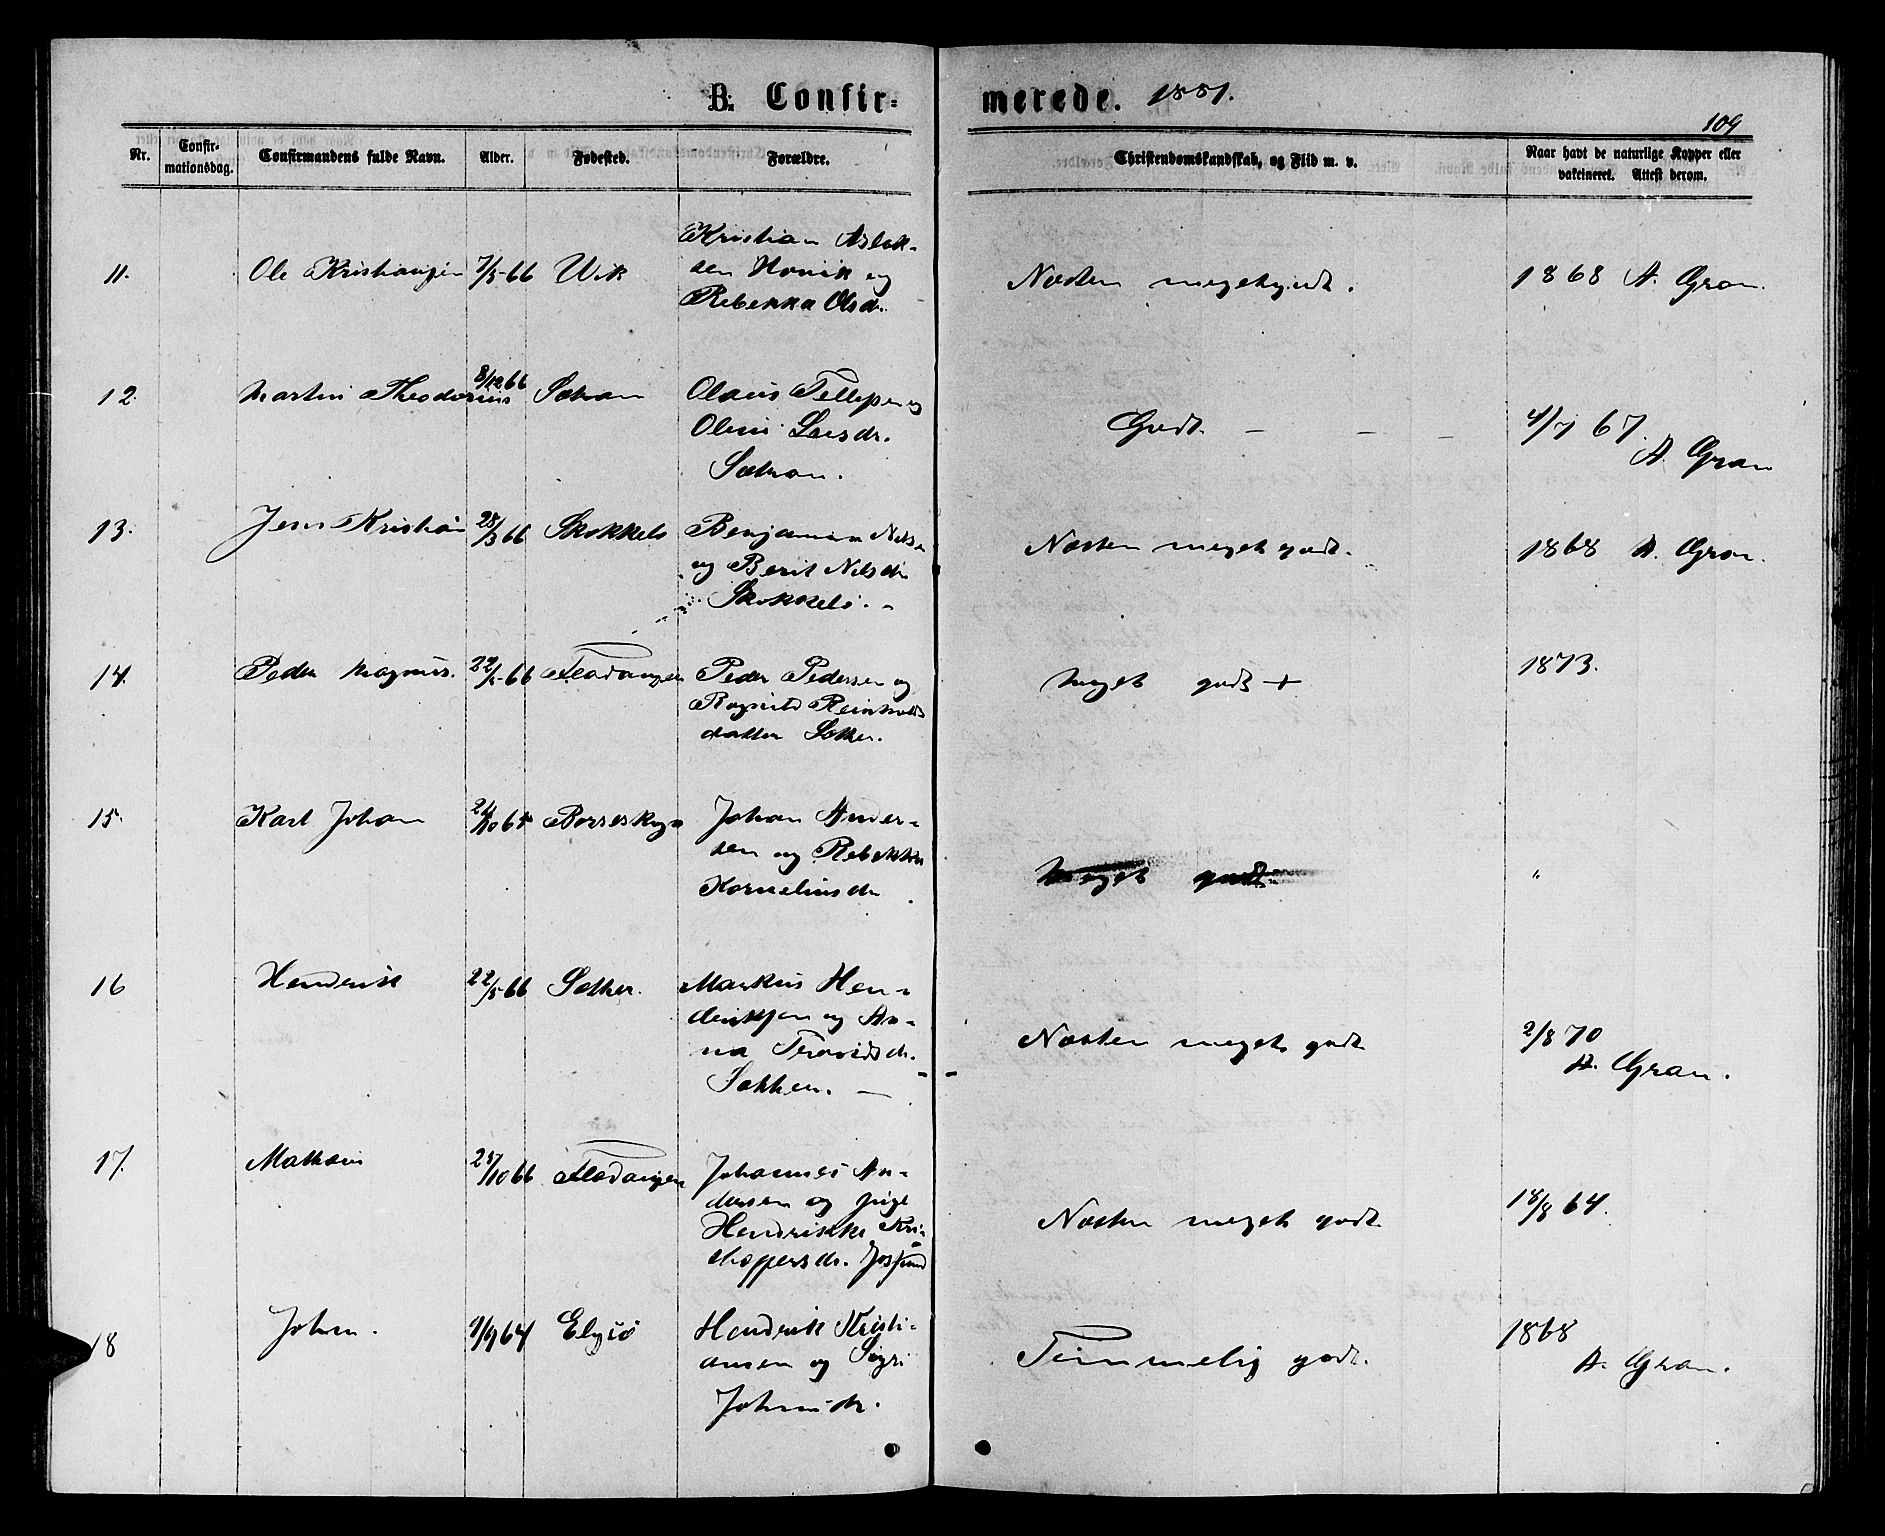 B. Confirmerede. 1881.
109
Nr. Confirmationsdag. Confirmandens fulde Navn. Alder. Fødested. Forældre. Christendomskundskab, og Flid m. v. Naar havt de naturlige Kopper eller vakcineret. Attest derom.
11. Ole Kristiansen 7/5 66 Vik Kristian Aslak-
sen Hovik og
Rebekka Olsd.
Næsten megetgodt. 1868 A. Gran.
12. Martin Theodorius 8/12 66 Sætran Olaus Tellefsen og
Oline Larsdr.
Sætran.
Godt. — — — 4/7 67.
A. Gran
13. Jens Kristian 28/3 66 Skokkelø Benjamin Nilsen
og Berit Nilsdr.
Skokkelø. -
Næsten meget godt. 1868 A. Gran.
14. Peder Magnus. 22/5 66 Fladanger Peder Pedersen og
Ragnild Reinholds
datter Sæther.
Meget godt + 1873.
15. Karl Johan 24/10 65 Johan Ander-
sen og Rebekka
Korneliusdr.
Meget godt. "
16 Henderik 22/5 66 Sæther. Markus Hen-
deriksen og An-
na
Sæther. —
Næsten meget godt 2/8 70
A. Gran.
17. 25/10 66 Fladanger Johannes An-
dersen og pige
Hendrikke Kri-
stoffersdr.
Næsten meget godt 18/8 64.
18 Johan. 1/9 64 Hendrik Kristi-
ansen og Sigri
Johnsdr.
Temmelig godt. 1868
A. Gran.